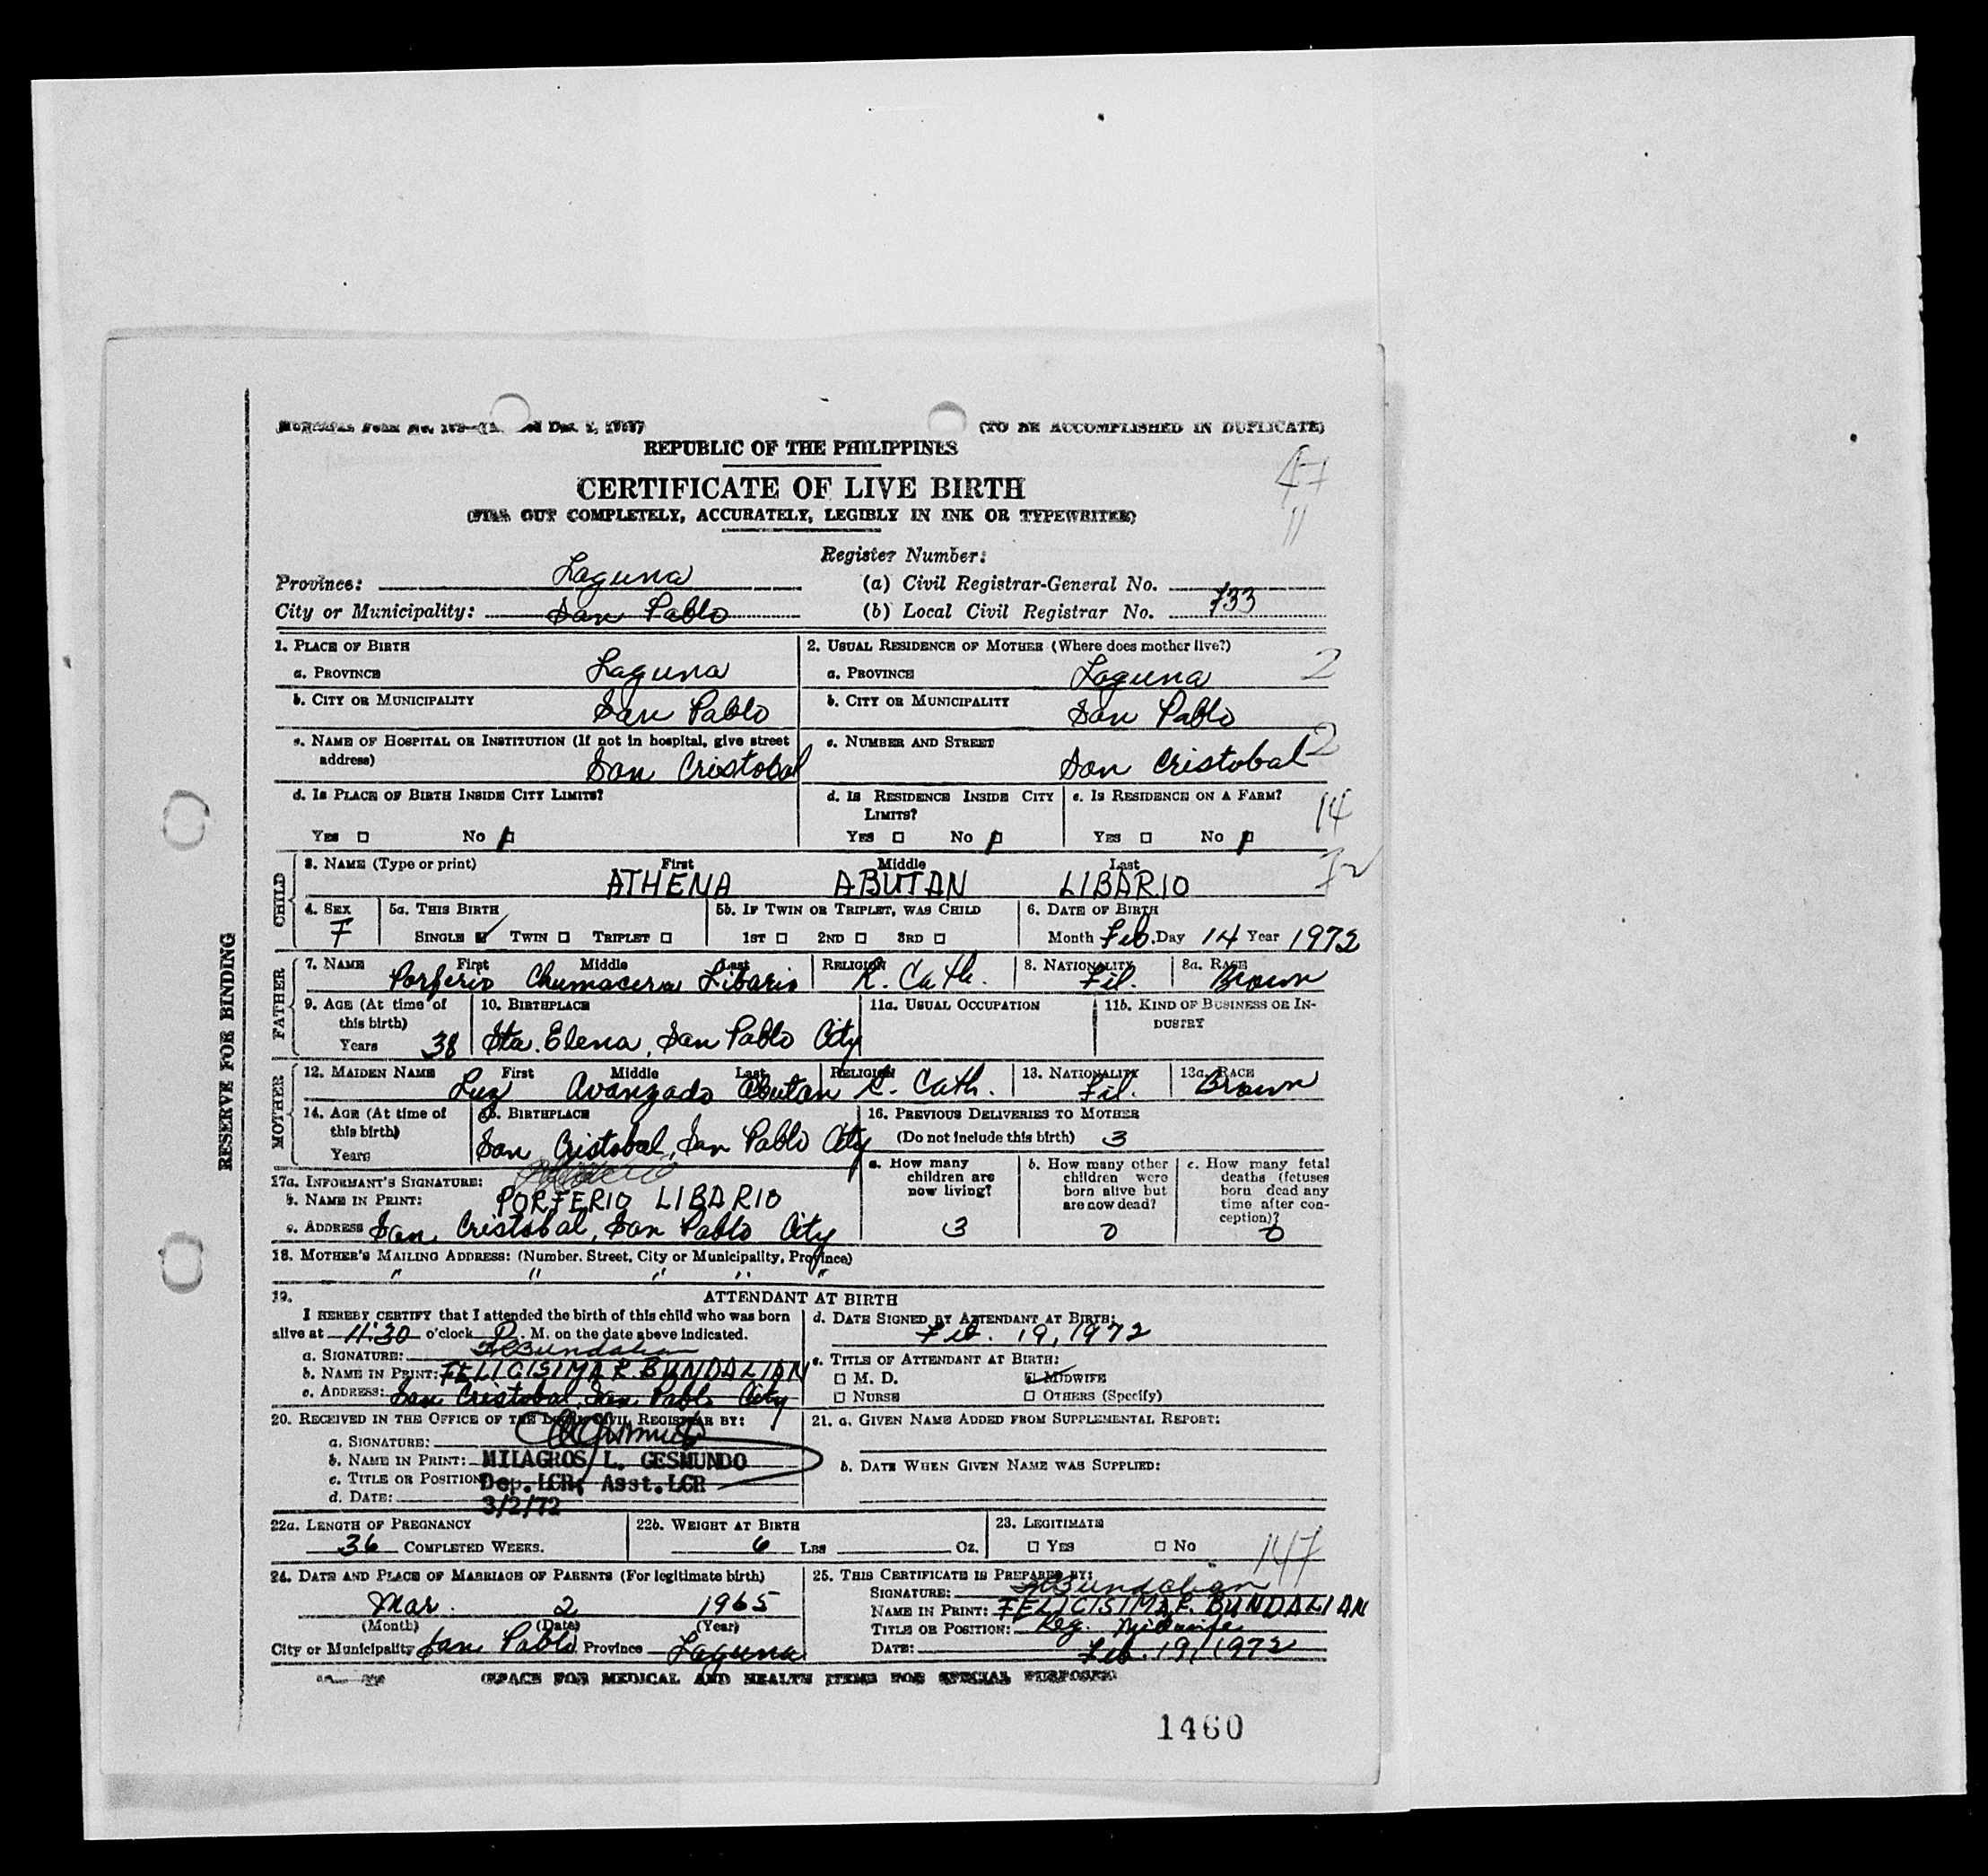 (TO BE ACCOMPLISHED IN DUPLICATE)
REPUBLIC OF THE PHILIPPINES
CERTIFICATE OF LIVE BIRTH
(FILL OUT COMPLETELY, ACCURATELY, LEGIBLY IN INK OR TYPEWRITER)
47
11
Register Number:
Province: Laguna (a) Civil Registrar-General No.
City or Municipality: San Pablo (b) Local Civil Registrar No. 733
1. PLACE OF BIRTH 2. USUAL RESIDENCE OF MOTHER (Where does mother live?)
a. PROVINCE Laguna a. PROVINCE Laguna 2
b. CITY OR MUNICIPALITY San Pablo b. CITY OR MUNICIPALITY San Pablo
c. NAME OF HOSPITAL OR INSTITUTION (If not in hospital, give street address) San Cristobal c. NUMBER AND STREET San Cristobal 2
d. IS PLACE OF BIRTH INSIDE CITY LIMITS? d. IS RESIDENCE INSIDE CITY LIMITS? e. IS RESIDENCE ON A FARM? 14
YES NO YES NO YES NO
72
CHILD
3. NAME (Type or print) First Middle Last
ATHENA ABUTAN LIBARIO
4. SEX 5a. THIS BIRTH 5b. IF TWIN OR TRIPLET, WAS CHILD 6. DATE OF BIRTH
F SINGLE TWIN TRIPLET 1ST 2ND 3RD Month Feb. Day 14 Year 1972
FATHER
7. NAME First Middle Last RELIGION 8. NATIONALITY 8a. RACE
Porferio Chumacera Libario R. Cath. Fil. Brown
9. AGE (At time of this birth) 10. BIRTHPLACE 11a. USUAL OCCUPATION 11b. KIND OF BUSINESS OR INDUSTRY
Years 38 Sta. Elena, San Pablo City
MOTHER
12. MAIDEN NAME First Middle Last RELIGION 13. NATIONALITY 13a. RACE
Luz Avanzado Abutan R. Cath. Fil. Brown
14. AGE (At time of this birth) 15. BIRTHPLACE 16. PREVIOUS DELIVERIES TO MOTHER
(Do not include this birth) 3
Years San Cristobal, San Pablo City
a. How many children are now living? b. How many other children were born alive but are now dead? c. How many fetal deaths (fetuses born dead any time after conception)?
3 0 0
17a. INFORMANT'S SIGNATURE:
b. NAME IN PRINT: PORFERIO LIBARIO
c. ADDRESS San Cristobal, San Pablo City
18. MOTHER'S MAILING ADDRESS: (Number. Street, City or Municipality, Province)
" " " " "
19. ATTENDANT AT BIRTH
I HEREBY CERTIFY that I attended the birth of this child who was born
alive at 11:30 o'clock P. M. on the date above indicated.
a. SIGNATURE: FRBundalian
b. NAME IN PRINT: FELICISIMA R. BUNDALIAN
c. ADDRESS: San Cristobal, San Pablo City
d. DATE SIGNED BY ATTENDANT AT BIRTH:
Feb. 19, 1972
e. TITLE OF ATTENDANT AT BIRTH:
M. D. MIDWIFE
NURSE OTHERS (Specify)
20. RECEIVED IN THE OFFICE OF THE LOCAL CIVIL REGISTRAR BY:
a. SIGNATURE:
b. NAME IN PRINT: MILAGROS L. GESMUNDO
c. TITLE OR POSITION Dep. LCR, Asst. LCR
d. DATE: 3/2/72
21. a. GIVEN NAME ADDED FROM SUPPLEMENTAL REPORT:
b. DATE WHEN GIVEN NAME WAS SUPPLIED:
22a. LENGTH OF PREGNANCY 22b. WEIGHT AT BIRTH 23. LEGITIMATE
36 COMPLETED WEEKS. 6 LBS OZ. YES NO 147
24. DATE AND PLACE OF MARRIAGE OF PARENTS (For legitimate birth)
Mar. 2 1965
(Month) (Date) (Year)
City or Municipality San Pablo Province Laguna
25. THIS CERTIFICATE IS PREPARED BY:
SIGNATURE: FRBundalian
NAME IN PRINT: FELICISIMA R. BUNDALIAN
TITLE OR POSITION: Reg. Midwife
DATE: Feb. 19, 1972
(SPACE FOR MEDICAL AND HEALTH ITEMS FOR SPECIAL PURPOSES)
1460
RESERVE FOR BINDING